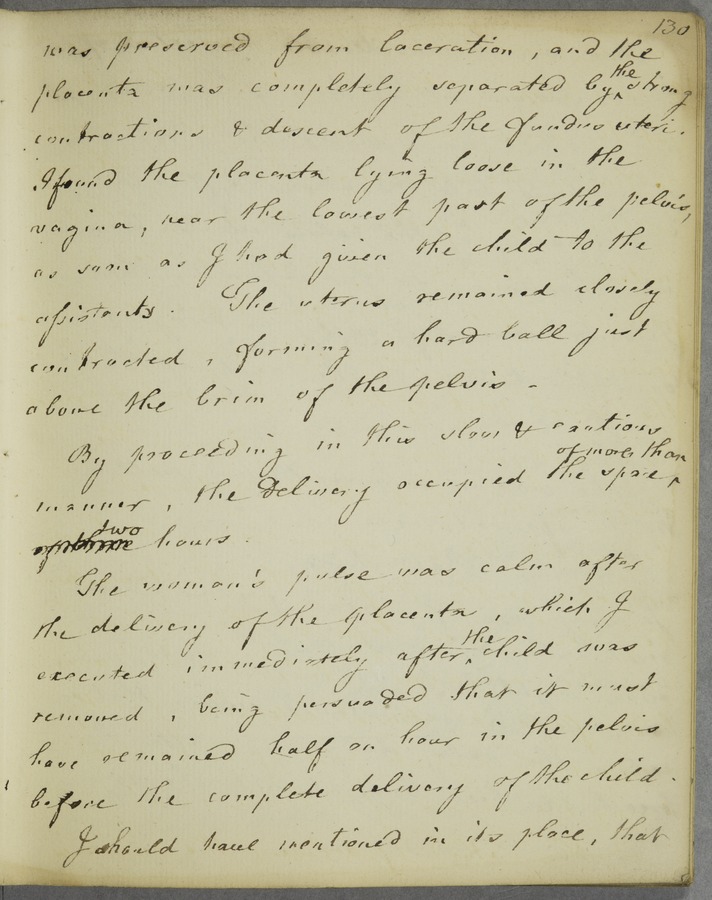 130
was preserved from laceration, and the
placenta was completely separated by the strong
contractions & descent of the fundus uteri.
I found the placenta lying loose in the
vagina, near the lowest part of the pelvis,
as soon as I had given the child to the
assistants. The uterus remained closely
contracted, forming a hard ball just
above the brim of the pelvis.
By proceeding in this slow & cautious
manner, the delivery occupied the space of more than
two hours.
The woman's pulse was calm after
the delivery of the placenta, which I
executed immediately after the child was
removed, being persuaded that it must
have remained half an hour in the pelvis
before the complete delivery of the child.
I should have mentioned in its place, that